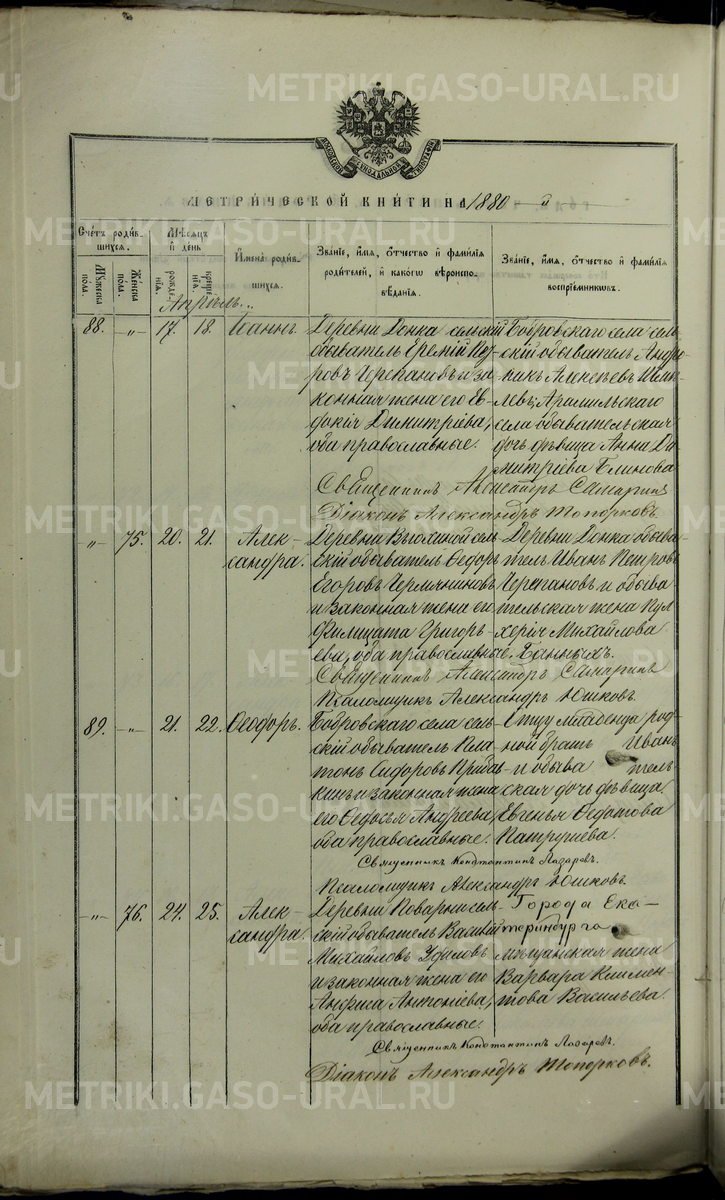 METRIKI.GASO-URAL.RU METRIKI.GASO-URAL.RU
МОСКОВСКОЙ СѴНОДАЛЬНОЙ ТИПОГРАФІИ
МЕТРИ́ЧЕСКОЙ КНИ́ГИ НА 1880 й
Счéтъ роди́в-
шихся.
Му́жеска
пóла.
Же́нска
пóла.
Мѣ́сяцъ
и҆ день
рожде́-
нїя.
креще́-
нїя.
И҆мена̀ роди́в-
шихся.
Зва́нїе, и҆́мя, ѻ҆́тчество и҆ фами́лїя
роди́телей, и҆ како́гѡ вѣроиспо-
вѣ́данїя.
Зва́нїе, и҆́мя, ѻ҆́тчество и҆ фами́лїя
воспрїе́мникѡвъ.
Апрѣль.
88. -"- 17. 18. Іоаннъ.
Деревни Донка сельскій
обыватель Еремій Пет-
ровъ Черепановъ и за-
конная жена его Ев-
докія Димитріева,
оба православные.
Бобровскаго села сель-
скій обыватель Андро-
никъ Алексѣевъ
Арамильскаго
села обывательская
дочь дѣвица Анна Ди-
митріева Блинова
Священникъ Александръ Самаринъ
Діаконъ Александръ Топорковъ
-"- 75. 20. 21. Алек-
сандра.
сель-
скій обыватель Ѳедоръ
Егоровъ
и законная жена его
Филицата Григорь-
ева, оба православные.
Деревни Донка обыва-
тель Иванъ Петровъ
Черепановъ и обыва-
тельская жена Пул-
херія Михайлова
Банныхъ.
Священникъ Александръ Самаринъ
Псаломщикъ Александръ Юшковъ.
89. -"- 21. 22. Ѳеодоръ.
Бобровскаго села сель-
скій обыватель Пла-
тонъ Сидоровъ
и законная жена
его Ѳедосья Андреева,
оба православные.
Отцу младенца род-
ной братъ Иванъ
и обыватель-
ская дочь дѣвица
Евгенья Ѳедотова
Патрушева.
Священникъ Константинъ Лазаревъ.
Псаломщикъ Александръ Юшковъ.
-"- 76. 24. 25. Алек-
сандра.
Деревни Поварни сель-
скій обыватель Василій
Михайловъ
и законная жена его
Анфиса Антоніева,
оба православные.
Города Ека-
теринбурга
мѣщанская жена
Варвара Климен-
това Васильева.
Священникъ Константинъ Лазаревъ.
Діаконъ Александръ Топорковъ.